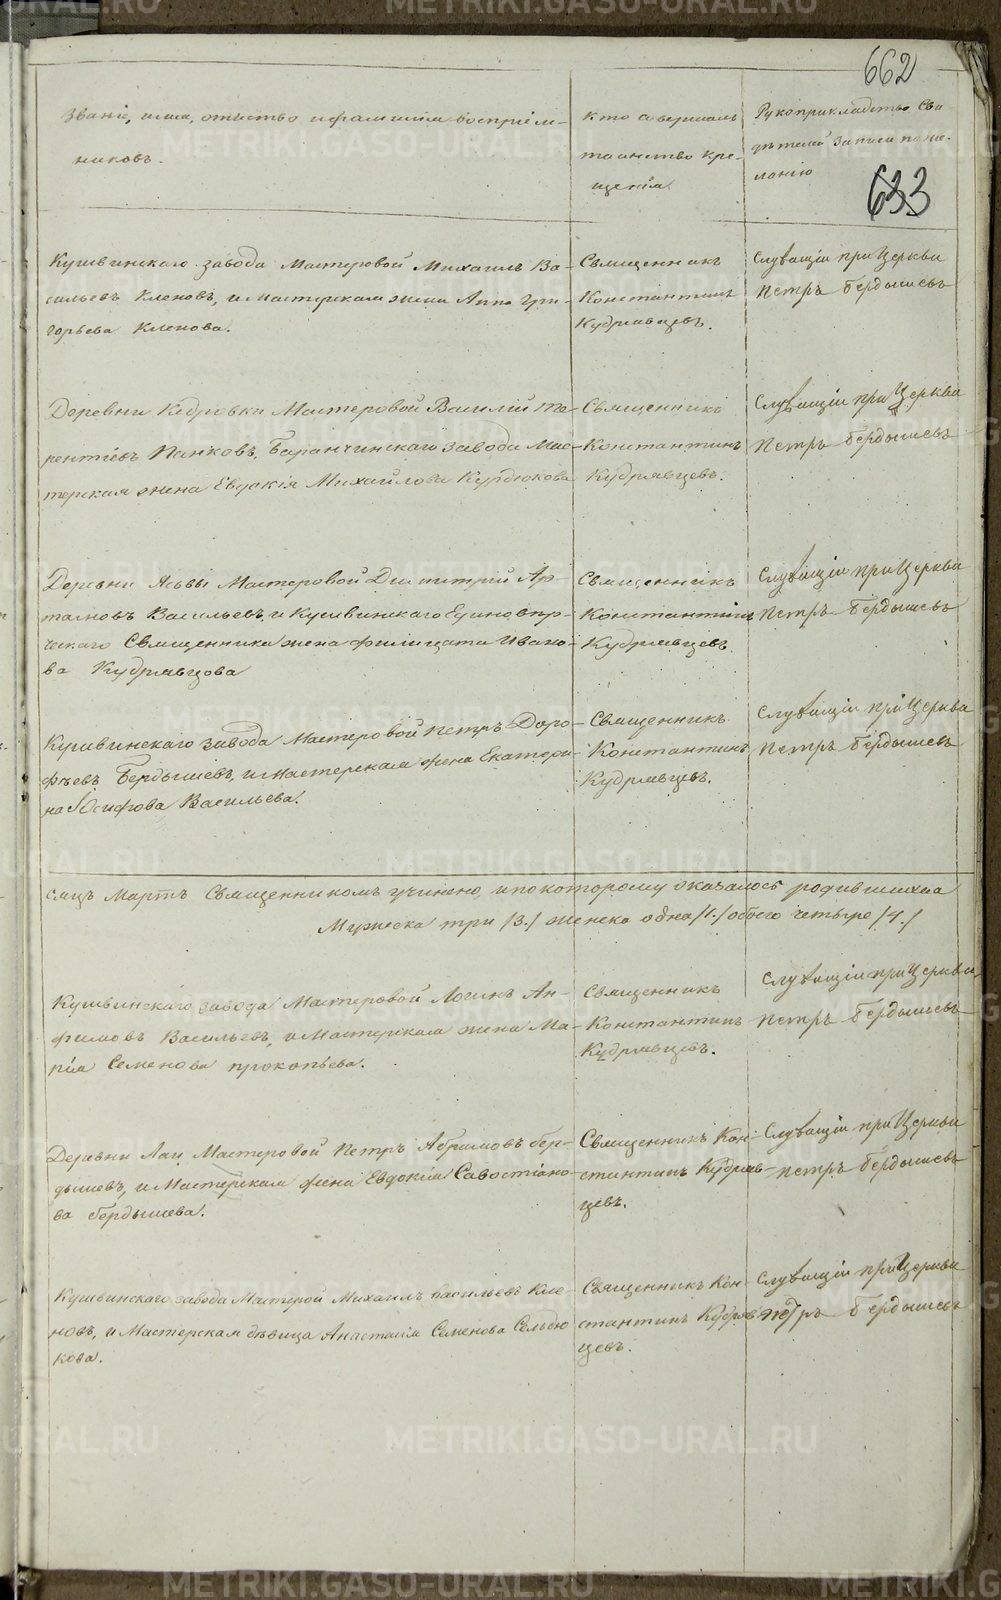 662
Званіе, имя, отчество и фамилія воспріем-
никовъ.
Кто совершалъ
таинство кре-
щенія.
Рукоприкладство сви-
дѣтелей записи по же-
ланію
633
Кушвинскаго завода Мастеровой Михаилъ Ва-
сильевъ Кленовъ, и Мастерская жена Анна Гри-
горьева Кленова.
Священникъ
Константинъ
Кудрявцевъ.
Служащій при Церкви
Петръ Бердышевъ
Деревни Кедровки Мастеровой Василій Те-
рентіевъ Панковъ, Баранчинскаго завода Мас-
терская жена Евдокія Михайлова Курдюкова
Священникъ
Константинъ
Кудрявцевъ.
Служащій при Церкви
Петръ Бердышевъ
Деревни Асьвы Мастеровой Дмитрій Ар-
тамовъ Васильевъ, и Кушвинскаго Единовѣр-
ческаго Священника жена Филицата Ивано-
ва Кудрявцова
Священникъ
Константинъ
Кудрявцевъ
Служащій при Церкви
Петръ Бердышевъ
Кушвинскаго завода Мастеровой Петръ Доро-
фѣевъ Бердышевъ, и мастерская жена Екатери-
на Осифова Васильева.
Священникъ
Константинъ
Кудрявцевъ.
Служащій при Церкви
Петръ Бердышевъ
сяцъ Мартъ Священникомъ учинено, и по которому оказалось родившихся
Мужеска три /3./ женска одна /1./ обоего четыре /4./
Кушвинскаго завода Мастеровой Логинъ Ан-
фимовъ Васильевъ, и Мастерская жена Ма-
рія Семенова Прокопьева.
Священникъ
Константинъ
Кудрявцевъ.
Служащій при Церкви
Петръ Бердышевъ
Деревни Лаи Мастеровой Петръ Абрамовъ Бер-
дышевъ, и Мастерская жена Евдокія Савостіано-
ва Бердышева.
Священникъ Кон-
стантинъ Кудряв-
цевъ.
Служащій при Церкви
Петръ Бердышевъ
Кушвинскаго завода Мастерой Михаилъ Васильевъ Кле-
новъ, и Мастерская дѣвица Анастасія Семенова Сельдю
кова.
Священникъ Кон-
стантинъ Кудряв
цевъ.
Служащій при Церкви
Петръ Бердышевъ
METRIKI.GASO-URAL.RU